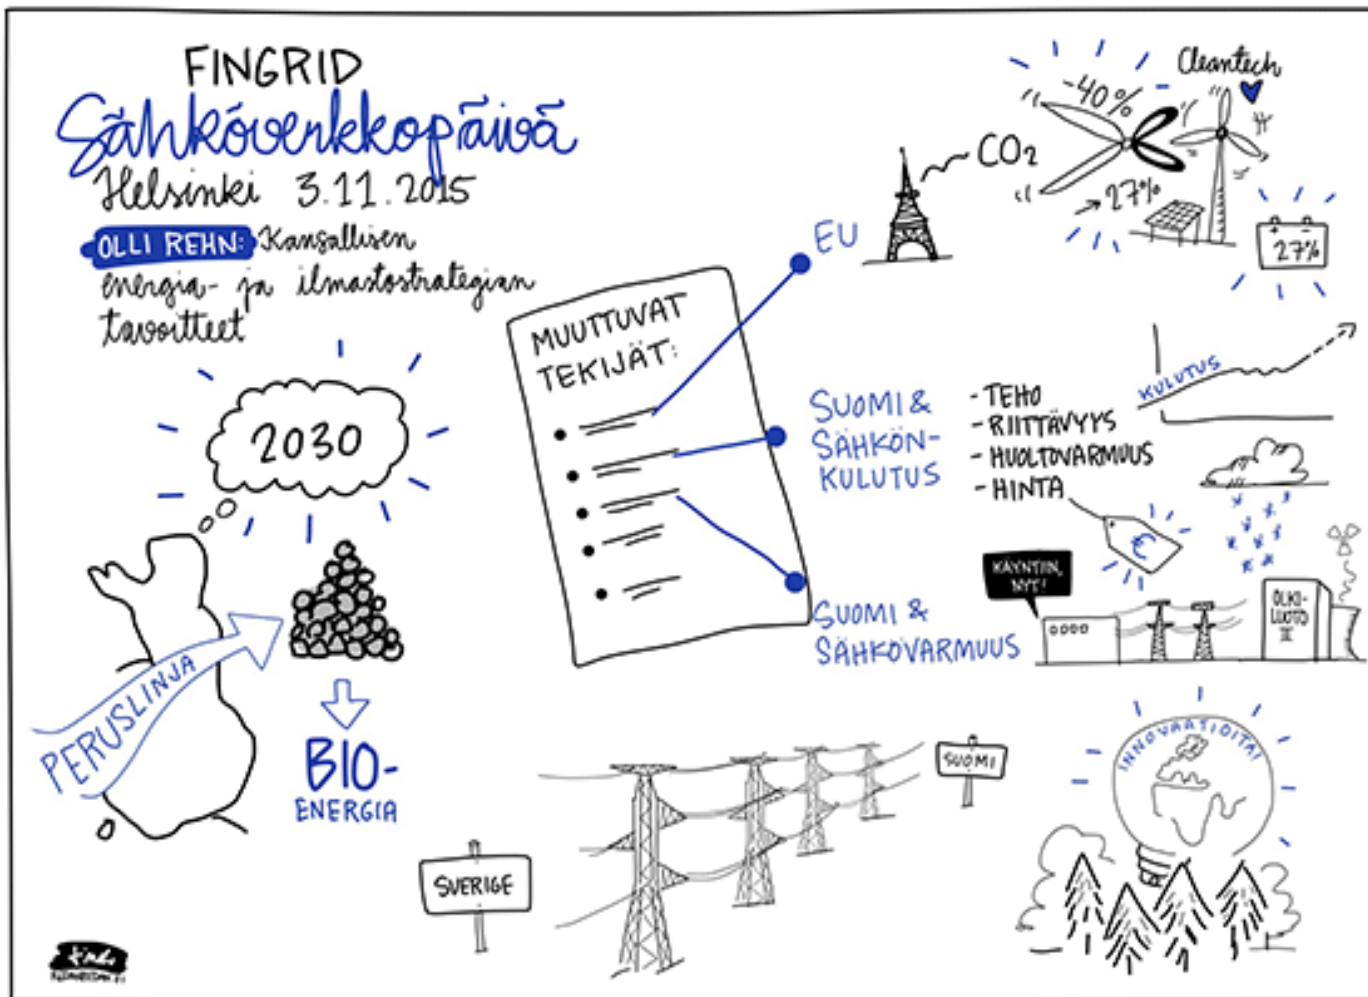 FINGRID
Sähköverkkopäivä
Helsinki 3.11.2015
OLLI REHN: Kansallisen
energia- ja ilmastostrategian
tavoitteet
2030
PERUSLINJA
BIO-
ENERGIA
MUUTTUVAT
TEKIJÄT:
EU
CO2
-40%
→27%
Cleantech
27%
SUOMI &
SÄHKÖN-
KULUTUS
- TEHO
- RIITTÄVYYS
- HUOLTOVARMUUS
- HINTA
KULUTUS
€
SUOMI &
SÄHKÖVARMUUS
KÄYNTIIN,
NYT!
OLKI-
LUOTO
SVERIGE
SUOMI
INNOVAATIOITA!